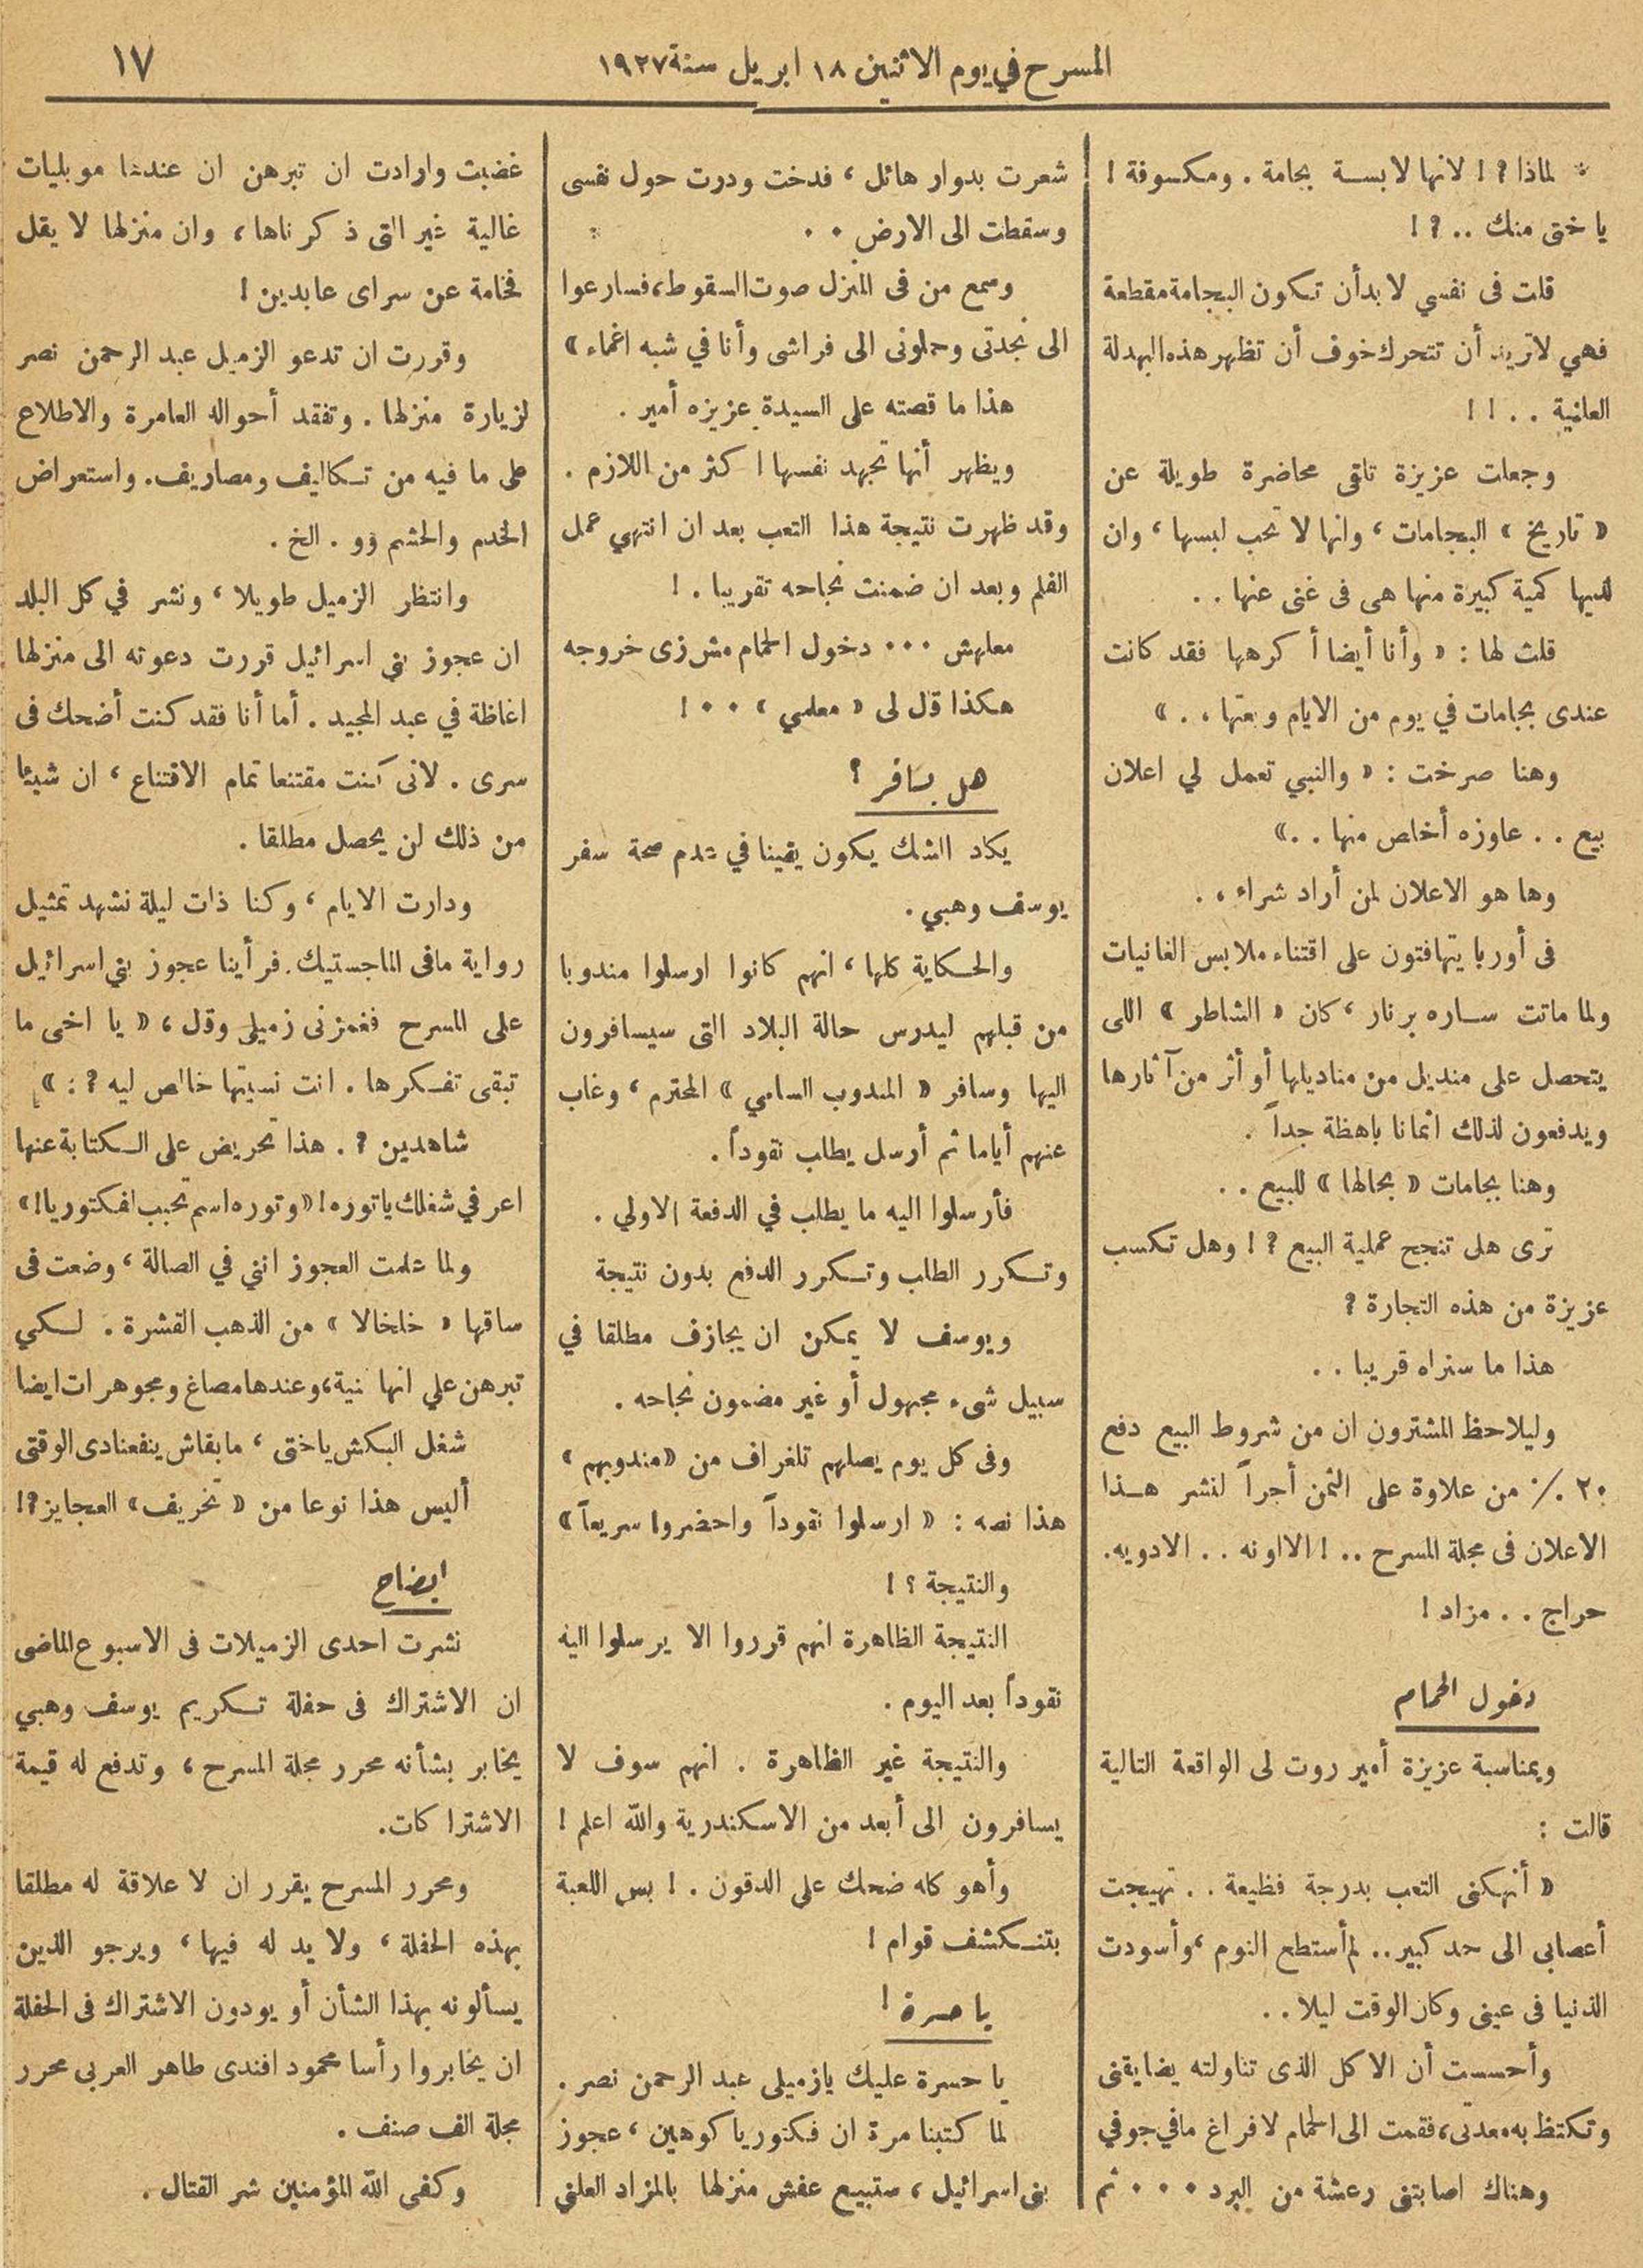 المسرح في يوم الاثنين ١٨ ابريل سنة ١٩٢٧
١٧
* لماذا ? ! لانها لابسة بجامة . ومكسوفة !
يا ختى منك .. ? !
قلت فى نفسي لا بد أن تكون البجامة مقطعة
فهي لا تريد أن تتحرك خوف أن تظهر هذه البهدلة
العلنية . . ! !
وجعلت عزيزة تلقى محاضرة طويلة عن
« تاريخ » البجامات ، وانها لا تحب لبسها ، وان
لديها كمية كبيرة منها هى فى غنى عنها . .
قلت لها : « وأنا أيضا أكرهها فقد كانت
عندى بجامات في يوم من الايام وبعتها . . »
وهنا صرخت : « والنبي تعمل لي اعلان
بيع . . عاوزه أخلص منها . . »
وها هو الاعلان لمن أراد شراء . .
فى أوربا يتهافتون على اقتناء ملابس الغانيات
ولما ماتت ساره برنار ، كان « الشاطر » اللى
يتحصل على منديل من مناديلها أو أثر من آثارها
ويدفعون لذلك اثمانا باهظة جداً .
وهنا بجامات « بحالها » للبيع . .
ترى هل تنجح عملية البيع ? ! وهل تكسب
عزيزة من هذه التجارة ?
هذا ما سنراه قريبا . .
وليلاحظ المشترون ان من شروط البيع دفع
٢٠ ٪ من علاوة على الثمن أجراً لنشر هذا
الاعلان فى مجلة المسرح .. ! الااونه . . الادويه.
حراج . . مزاد !
دخول الحمام
وبمناسبة عزيزة أمير روت لى الواقعة التالية
قالت :
« أنهكنى التعب بدرجة فظيعة . . تهيجت
أعصابى الى حد كبير .. لم أستطع النوم ، وأسودت
الدنيا فى عينى وكان الوقت ليلا . .
وأحسست أن الاكل الذى تناولته يضايقنى
وتكتظ به معدتى ، فقمت الى الحمام لافراغ ما في جوفي
وهناك اصابتنى رعشة من البرد . . . ثم
شعرت بدوار هائل ، فدخت ودرت حول نفسى
وسقطت الى الارض . .
وسمع من فى المنزل صوت السقوط ، فسارعوا
الى نجدتى وحملونى الى فراشى وأنا في شبه اغماء »
هذا ما قصته على السيدة عزيزه أمير .
ويظهر أنها تجهد نفسها اكثر من اللازم .
وقد ظهرت نتيجة هذا التعب بعد ان انتهي عمل
الفلم وبعد ان ضمنت نجاحه تقريبا . !
معلهش . . . دخول الحمام مش زى خروجه
هكذا قال لى « معلمي » . . !
هل يسافر ؟
يكاد الشك يكون يقينا في عدم صحة سفر
يوسف وهبي .
والحكاية كلها ، انهم كانوا ارسلوا مندوبا
من قبلهم ليدرس حالة البلاد التى سيسافرون
اليها وسافر « المندوب السامي » المحترم ، وغاب
عنهم أياما ثم أرسل يطلب نقوداً .
فأرسلوا اليه ما يطلب في الدفعة الاولي .
وتكرر الطلب وتكرر الدفع بدون نتيجة
ويوسف لا يمكن ان يجازف مطلقا في
سبيل شىء مجهول أو غير مضمون نجاحه .
وفى كل يوم يصلهم تلغراف من « مندوبهم »
هذا نصه : « ارسلوا نقوداً واحضروا سريعاً »
والنتيجة ؟ !
النتيجة الظاهرة انهم قرروا الا يرسلوا اليه
نقوداً بعد اليوم .
والنتيجة غير الظاهرة . انهم سوف لا
يسافرون الى أبعد من الاسكندرية والله اعلم !
وأهو كله ضحك على الدقون . ! بس اللعبة
بتنكشف قوام !
يا حسرة !
يا حسرة عليك يا زميلى عبد الرحمن نصر .
لما كتبنا مرة ان فكتوريا كوهين ، عجوز
بنى اسرائيل ، ستبيع عفش منزلها بالمزاد العلني
غضبت وارادت ان تبرهن ان عندها موبليات
غالية غير التى ذكرناها ، وان منزلها لا يقل
فخامة عن سراى عابدين !
وقررت ان تدعو الزميل عبد الرحمن نصر
لزيارة منزلها . وتفقد أحواله العامرة والاطلاع
على ما فيه من تكاليف ومصاريف . واستعراض
الخدم والحشم وو . الخ .
وانتظر الزميل طويلا ، ونشر في كل البلد
ان عجوز بني اسرائيل قررت دعوته الى منزلها
اغاظة في عبد المجيد . أما أنا فقد كنت أضحك فى
سرى . لانى كنت مقتنعا تمام الاقتناع ، ان شيئا
من ذلك لن يحصل مطلقا .
ودارت الايام ، وكنا ذات ليلة نشهد تمثيل
رواية ما فى الماجستيك . فرأينا عجوز بني اسرائيل
على المسرح فغمزنى زميلى وقال ، « يا اخى ما
تبقى تفكرها . انت نسيتها خالص ليه ? : »
شاهدين ? . هذا تحريض على الكتابة عنها
اعرفي شغلك يا توره ! « وتوره اسم تحبب لفكتوريا ! »
ولما علمت العجوز انني في الصالة ، وضعت فى
ساقها « خلخالا » من الذهب القشرة . لكي
تبرهن علي انها غنية ، وعندها مصاغ ومجوهرات ايضا
شغل البكش يا ختى ، ما بقاش ينفعنا دى الوقتى
أليس هذا نوعا من « تخريف » العجايز ? !
ايضاح
نشرت احدى الزميلات فى الاسبوع الماضى
ان الاشتراك فى حفلة تكريم يوسف وهبي
يخابر بشأنه محرر مجلة المسرح ، وتدفع له قيمة
الاشتراكات .
ومحرر المسرح يقرر ان لا علاقة له مطلقا
بهذه الحفلة ، ولا يد له فيها ، ويرجو الذين
يسألونه بهذا الشأن أو يودون الاشتراك فى الحفلة
ان يخابروا رأسا محمود افندى طاهر العربى محرر
مجلة الف صنف .
وكفى الله المؤمنين شر القتال .